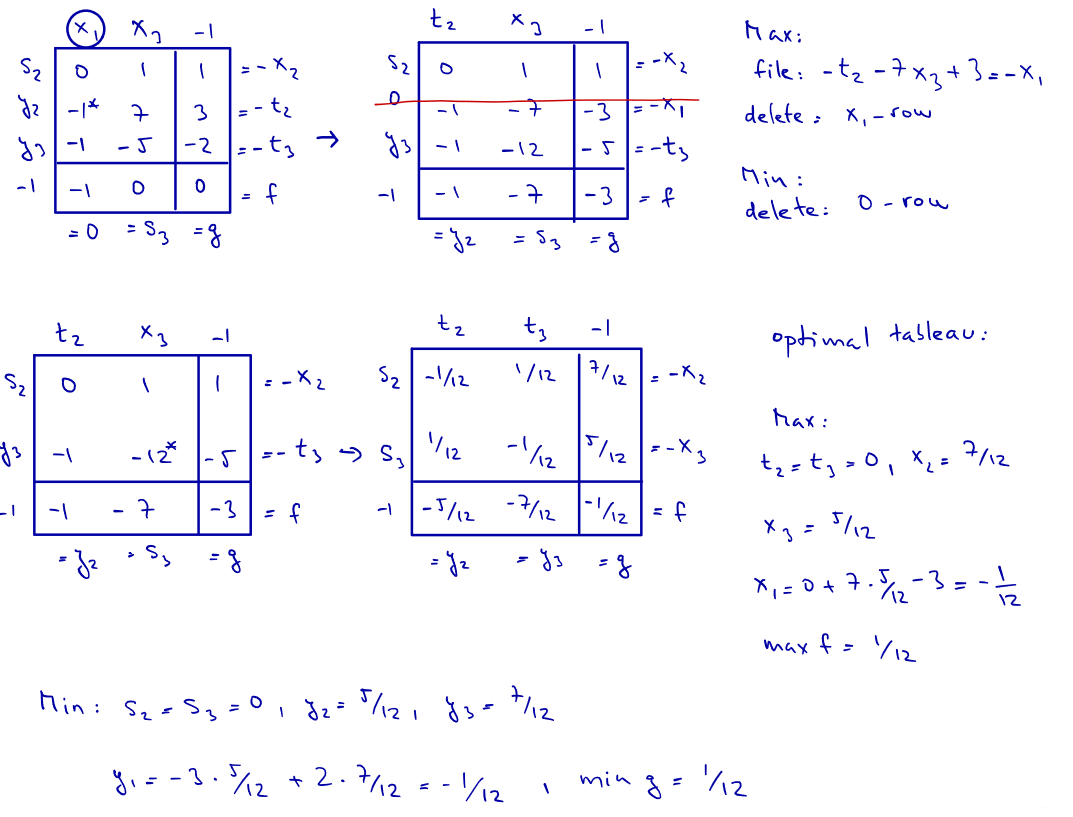 x₁ x₃ -1
s₂ 0 1 1 = -x₂
y₂ -1* 7 3 = -t₂
y₃ -1 -5 -2 = -t₃
-1 -1 0 0 = f
= 0 = s₃ = g
→
t₂ x₃ -1
s₂ 0 1 1 = -x₂
0 -1 -7 -3 = -x₁
y₃ -1 -12 -5 = -t₃
-1 -1 -7 -3 = f
= y₂ = s₃ = g
Max:
file: -t₂ - 7x₃ + 3 = -x₁
delete: x₁-row
Min:
delete: 0-row
t₂ x₃ -1
s₂ 0 1 1 = -x₂
y₃ -1 -12* -5 = -t₃
-1 -1 -7 -3 = f
= y₂ = s₃ = g
→
t₂ t₃ -1
s₂ -1/12 1/12 7/12 = -x₂
s₃ 1/12 -1/12 5/12 = -x₃
-1 -5/12 -7/12 -1/12 = f
= y₂ = y₃ = g
optimal tableau:
Max:
t₂ = t₃ = 0, x₂ = 7/12
x₃ = 5/12
x₁ = 0 + 7 · 5/12 - 3 = -1/12
max f = 1/12
Min: s₂ = s₃ = 0, y₂ = 5/12, y₃ = 7/12
y₁ = -3 · 5/12 + 2 · 7/12 = -1/12, min g = 1/12